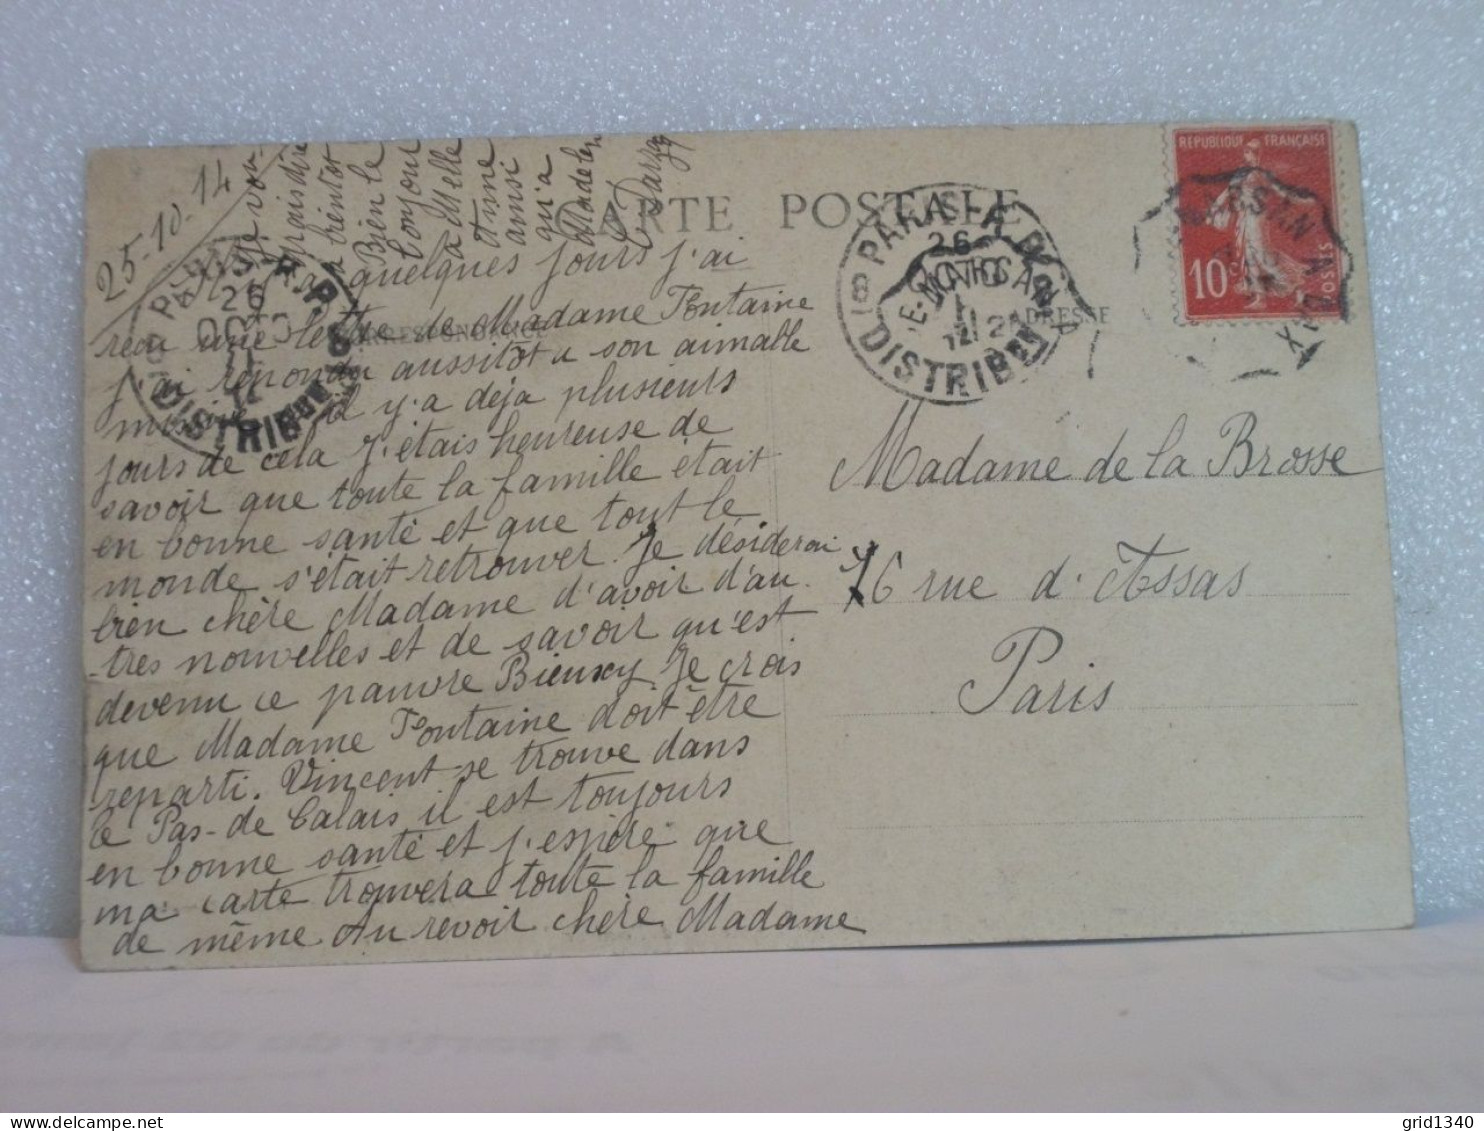 25-10-14
CARTE POSTALE
CORRESPONDANCE
ADRESSE
RÉPUBLIQUE FRANÇAISE
10 c
POSTES
PARIS
DISTRIB
26
PARIS
DISTRIB
26
quelques jours j'ai
reçu une lettre de Madame Fontaine
j'ai répondu aussitôt a son aimable
il y'a déja plusieurs
jours de cela J'étais heureuse de
savoir que toute la famille était
en bonne santé et que tout le
monde s'était retrouver. Je désiderai
bien chère Madame d'avoir d'au
-tres nouvelles et de savoir qu'est
devenu ce pauvre Bieuxy Je crois
que Madame Fontaine doit être
reparti. Vincent se trouve dans
le Pas-de Calais il est toujours
en bonne santé et j'espère que
ma carte trouvera toute la famille
de même Au revoir chère Madame
je vou
drais dire
a bientôt
Bien le
bonjour
a Melle
Anne
ainsi
qu'a
Madele
Darz
Madame de la Brosse
16 rue d'Assas
Paris
grid1340